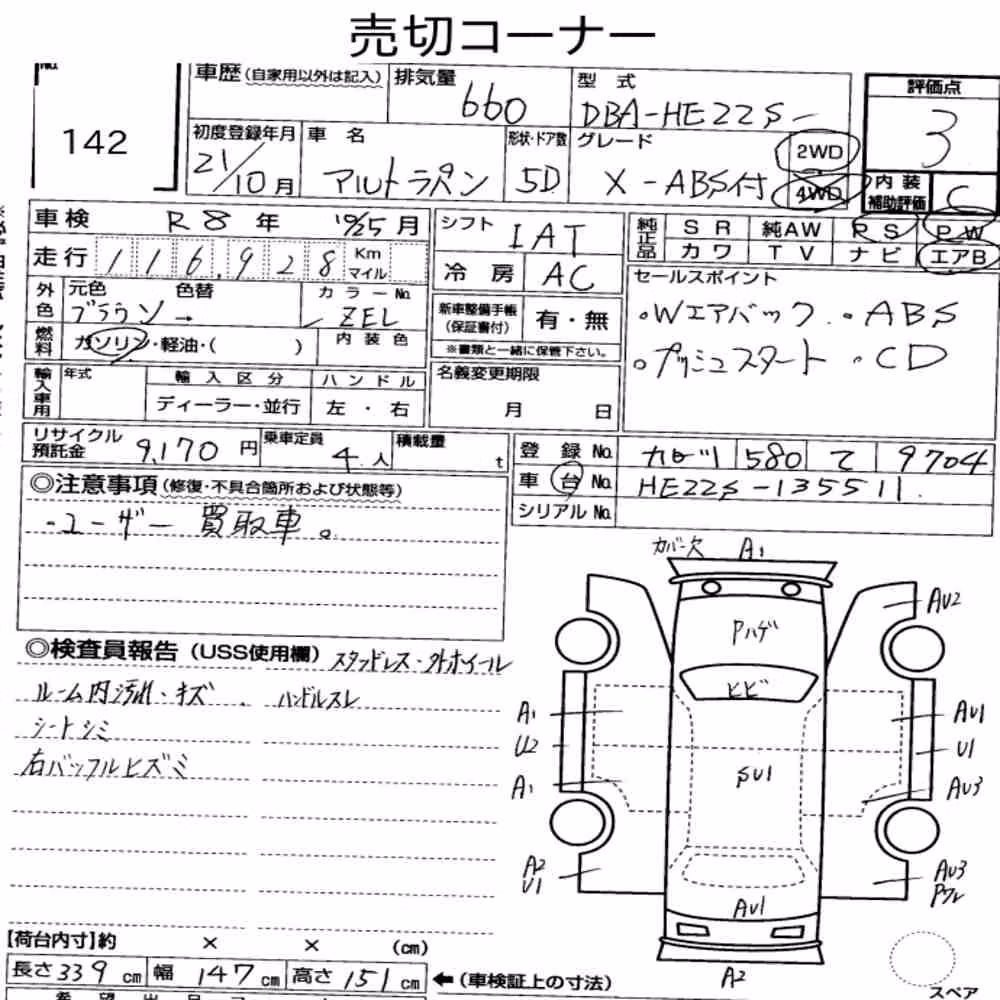 売切コーナー
142
車歴 (自家用以外は記入)
排気量 660
型式 DBA-HE22S
評価点 3
初度登録年月 21/10月
車名 アルトラパン
形状・ドア数 5D
グレード X-ABS付
2WD
4WD
内装補助評価 C
車検 R8年 10/25月
走行 116,928 Km マイル
外色 元色 ブラウン → 色替
カラーNo. ZEL
燃料 ガソリン・軽油・( )
内装色
輸入車用 年式
輸入区分 ディーラー・並行
ハンドル 左・右
シフト IAT
冷房 AC
新車整備手帳(保証書付) 有・無
※書類と一緒に保管下さい。
名義変更期限 月 日
純正品 SR 純AW PS PW
カワ TV ナビ エアB
セールスポイント
・Wエアバック ・ABS
・プッシュスタート ・CD
リサイクル預託金 9,170円
乗車定員 4人
積載量 t
登録No. 580 て 9704
車台No. HE22S-135511
シリアルNo.
◎注意事項 (修復・不具合箇所および状態等)
・ユーザー買取車。
◎検査員報告 (USS使用欄) スタッドレス・外ホイール
ルーム内汚れ・キズ ハンドルスレ
シートシミ
右バッフルヒズミ
カバー欠 A1
AU2
Pハゲ
ヒビ
A1
AU1
U2
U1
SU1
A1
AU3
A2
U1
AU3
AU1
A2
スペア
【荷台内寸】約 × × (cm)
長さ339cm 幅147cm 高さ151cm ←(車検証上の寸法)